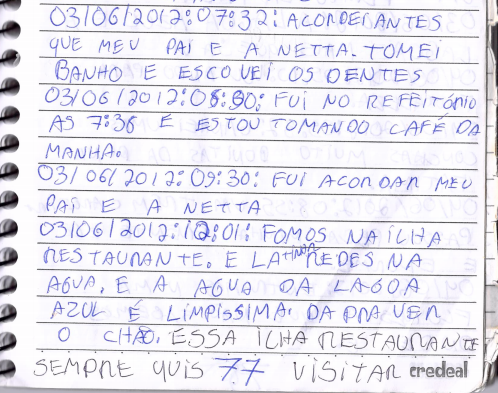 03/06/2012:07:32: ACORDEI ANTES
QUE MEU PAI E A NETTA. TOMEI
BANHO E ESCOVEI OS DENTES
03/06/2012:08:30: FUI NO REFEITÓRIO
AS 7:36 E ESTOU TOMANDO CAFÉ DA
MANHA.
03/06/2012:09:30: FUI ACORDAR MEU
PAI E A NETTA
03/06/2012:12:01: FOMOS NA ILHA
RESTAURANTE. E LA TINHA REDES NA
AGUA. E A AGUA DA LAGOA
AZUL É LIMPISSIMA. DA PRA VER
O CHÃO. ESSA ILHA RESTAURANTE
SEMPRE QUIS 77 VISITAR credeal